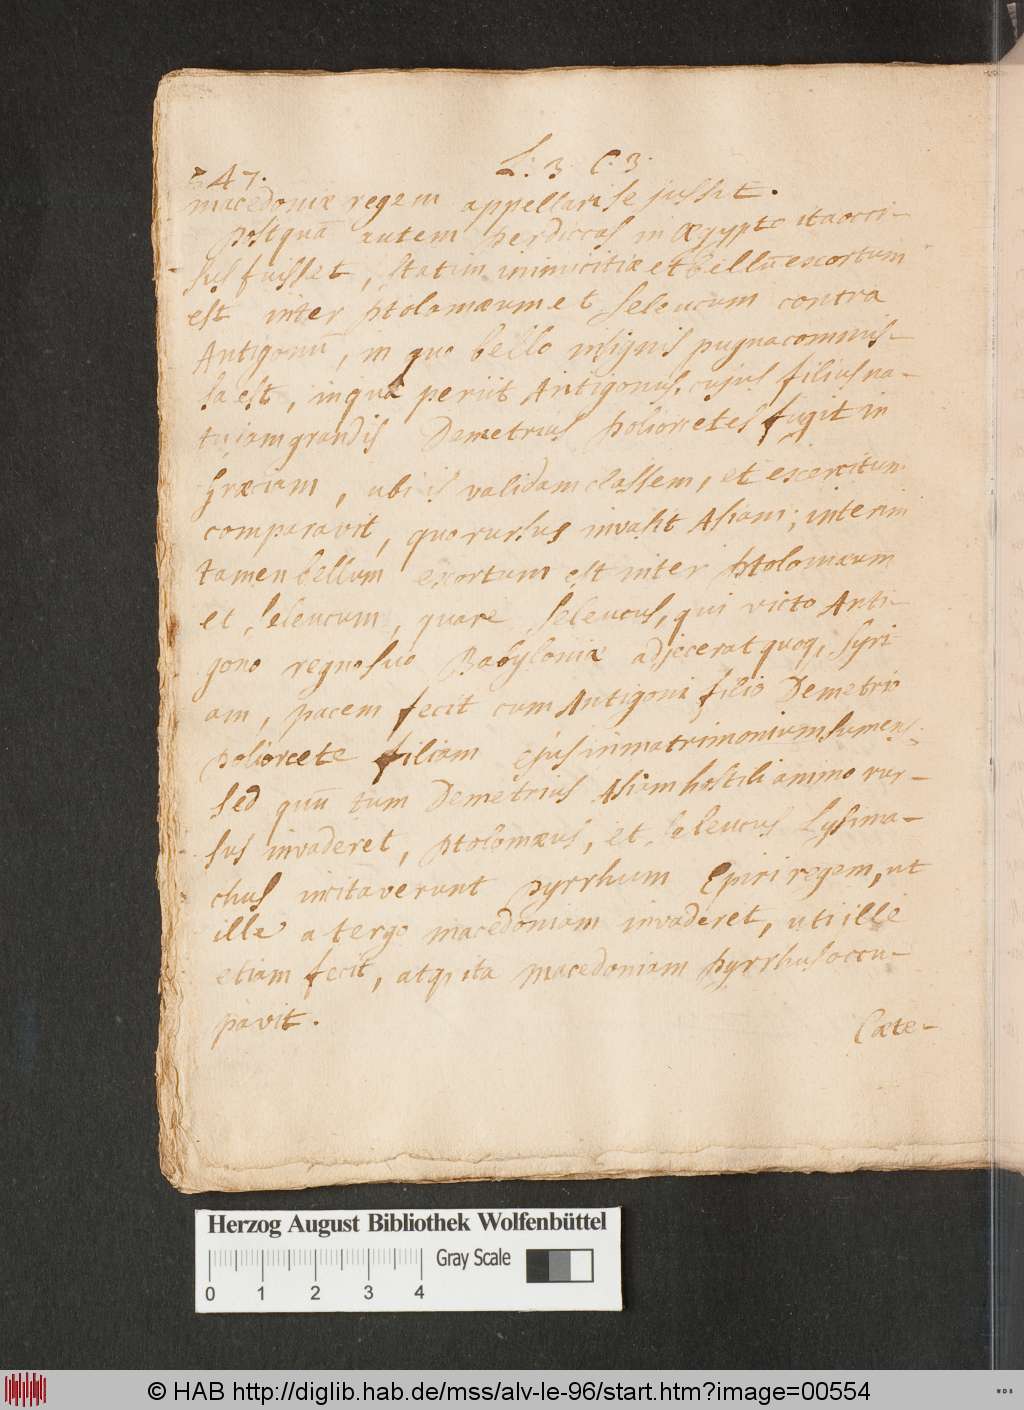 L: 3. C. 3.
547.
macedoniæ regem appellari se jussit.
postquā autem perdiccas in Ægypto ita occi-
sus fuisset, statim inimicitiæ et bellū exortum
est inter ptolomæum et seleucum contra
Antigonū, in quo bello insignis pugna commis-
sa est, in qua periit Antigonus, cujus filius na-
tu jam grandis Demetrius poliorcetes fugit in
Græciam, ubi is validam classem, et exercitum
comparavit, quo rursus invasit Asiam; interim
tamen bellum exortum est inter ptolomæum
et seleucum, quare seleucus, qui victo Anti-
gono regno suo Babyloniæ adjecerat quoq, syri
am, pacem fecit cum Antigoni filio Demetrio
poliorcete filiam ejus in matrimonium sumens,
sed quū tum Demetrius Asiam hostili animo rur-
sus invaderet, ptolomæus, et seleucus Lysima-
chus incitaverunt pyrrhum Epiri regem, ut
ille a tergo macedoniam invaderet, uti ille
etiam fecit, atq, ita macedoniam pyrrhus occu-
pavit.
Cæte-
Herzog August Bibliothek Wolfenbüttel
Gray Scale
0 1 2 3 4
© HAB http://diglib.hab.de/mss/alv-le-96/start.htm?image=00554